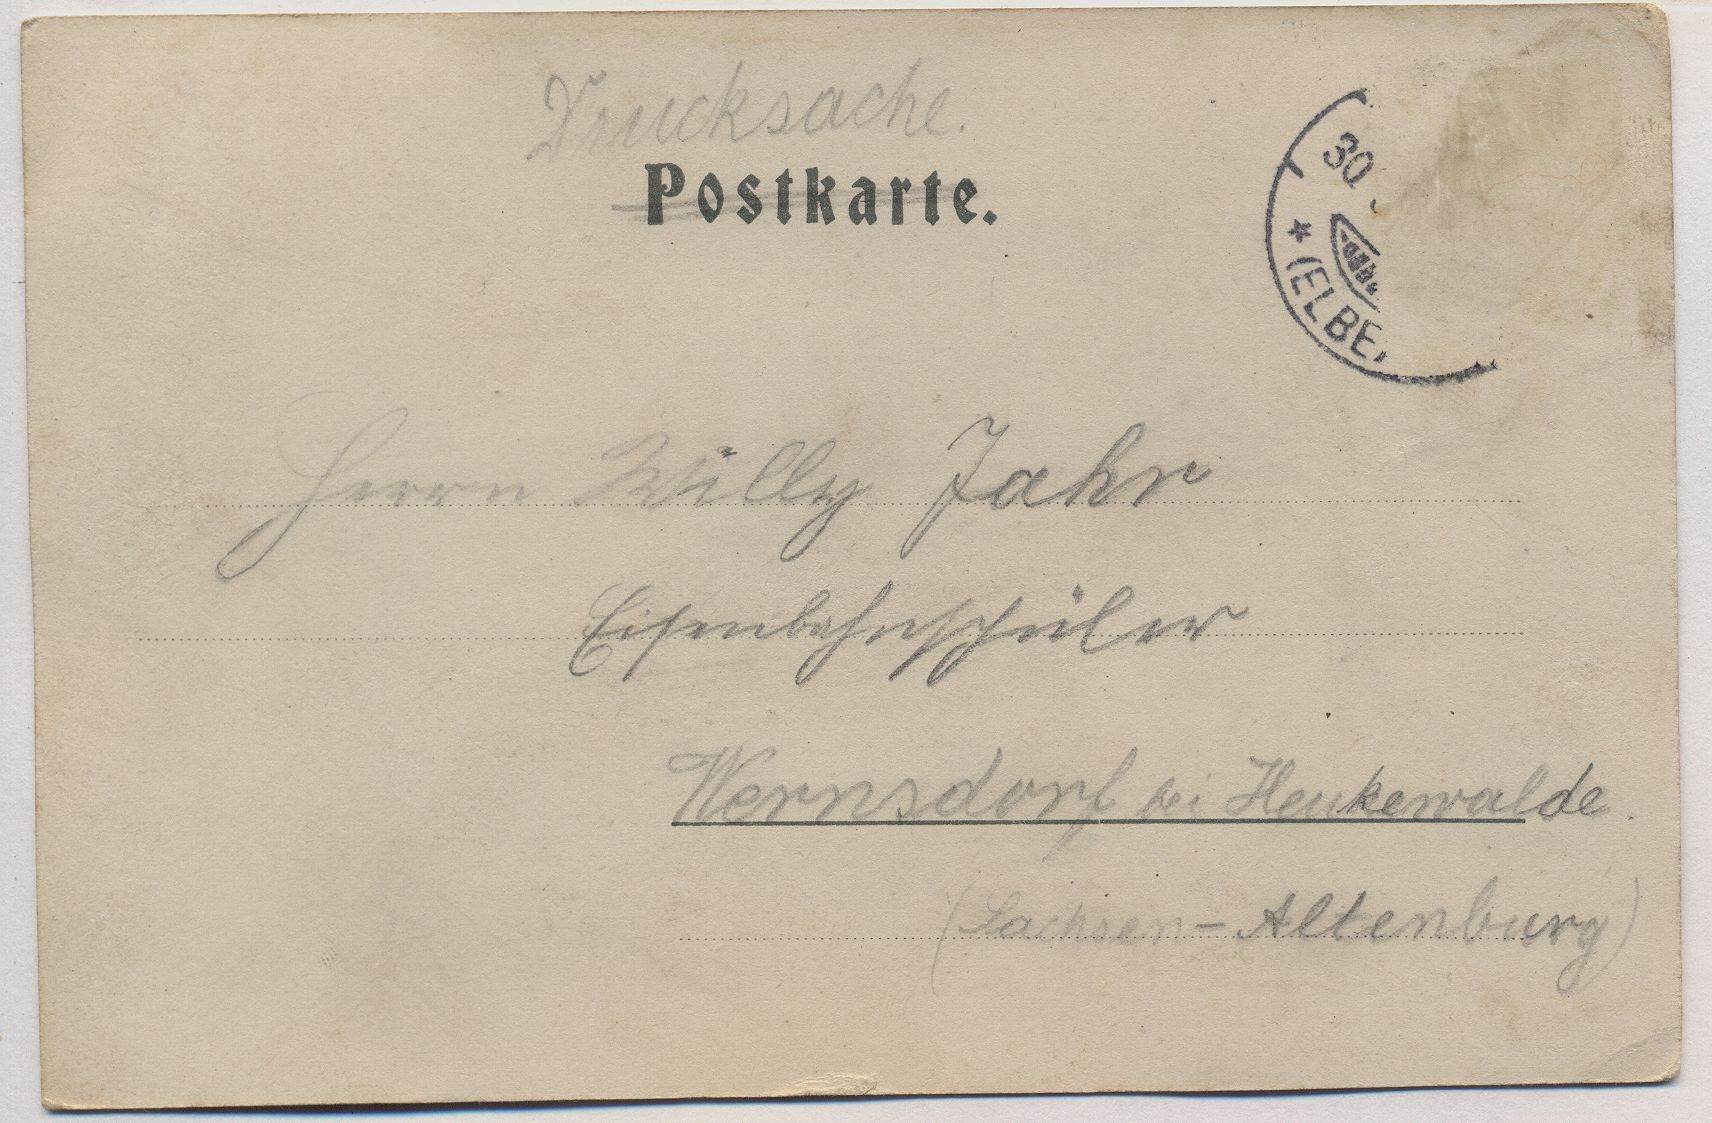 Drucksache.
Postkarte.
30
* (ELBE
Herrn Willy Jahr
Eisenbahnschüler
Wernsdorf bei Heukewalde.
(Sachsen-Altenburg)